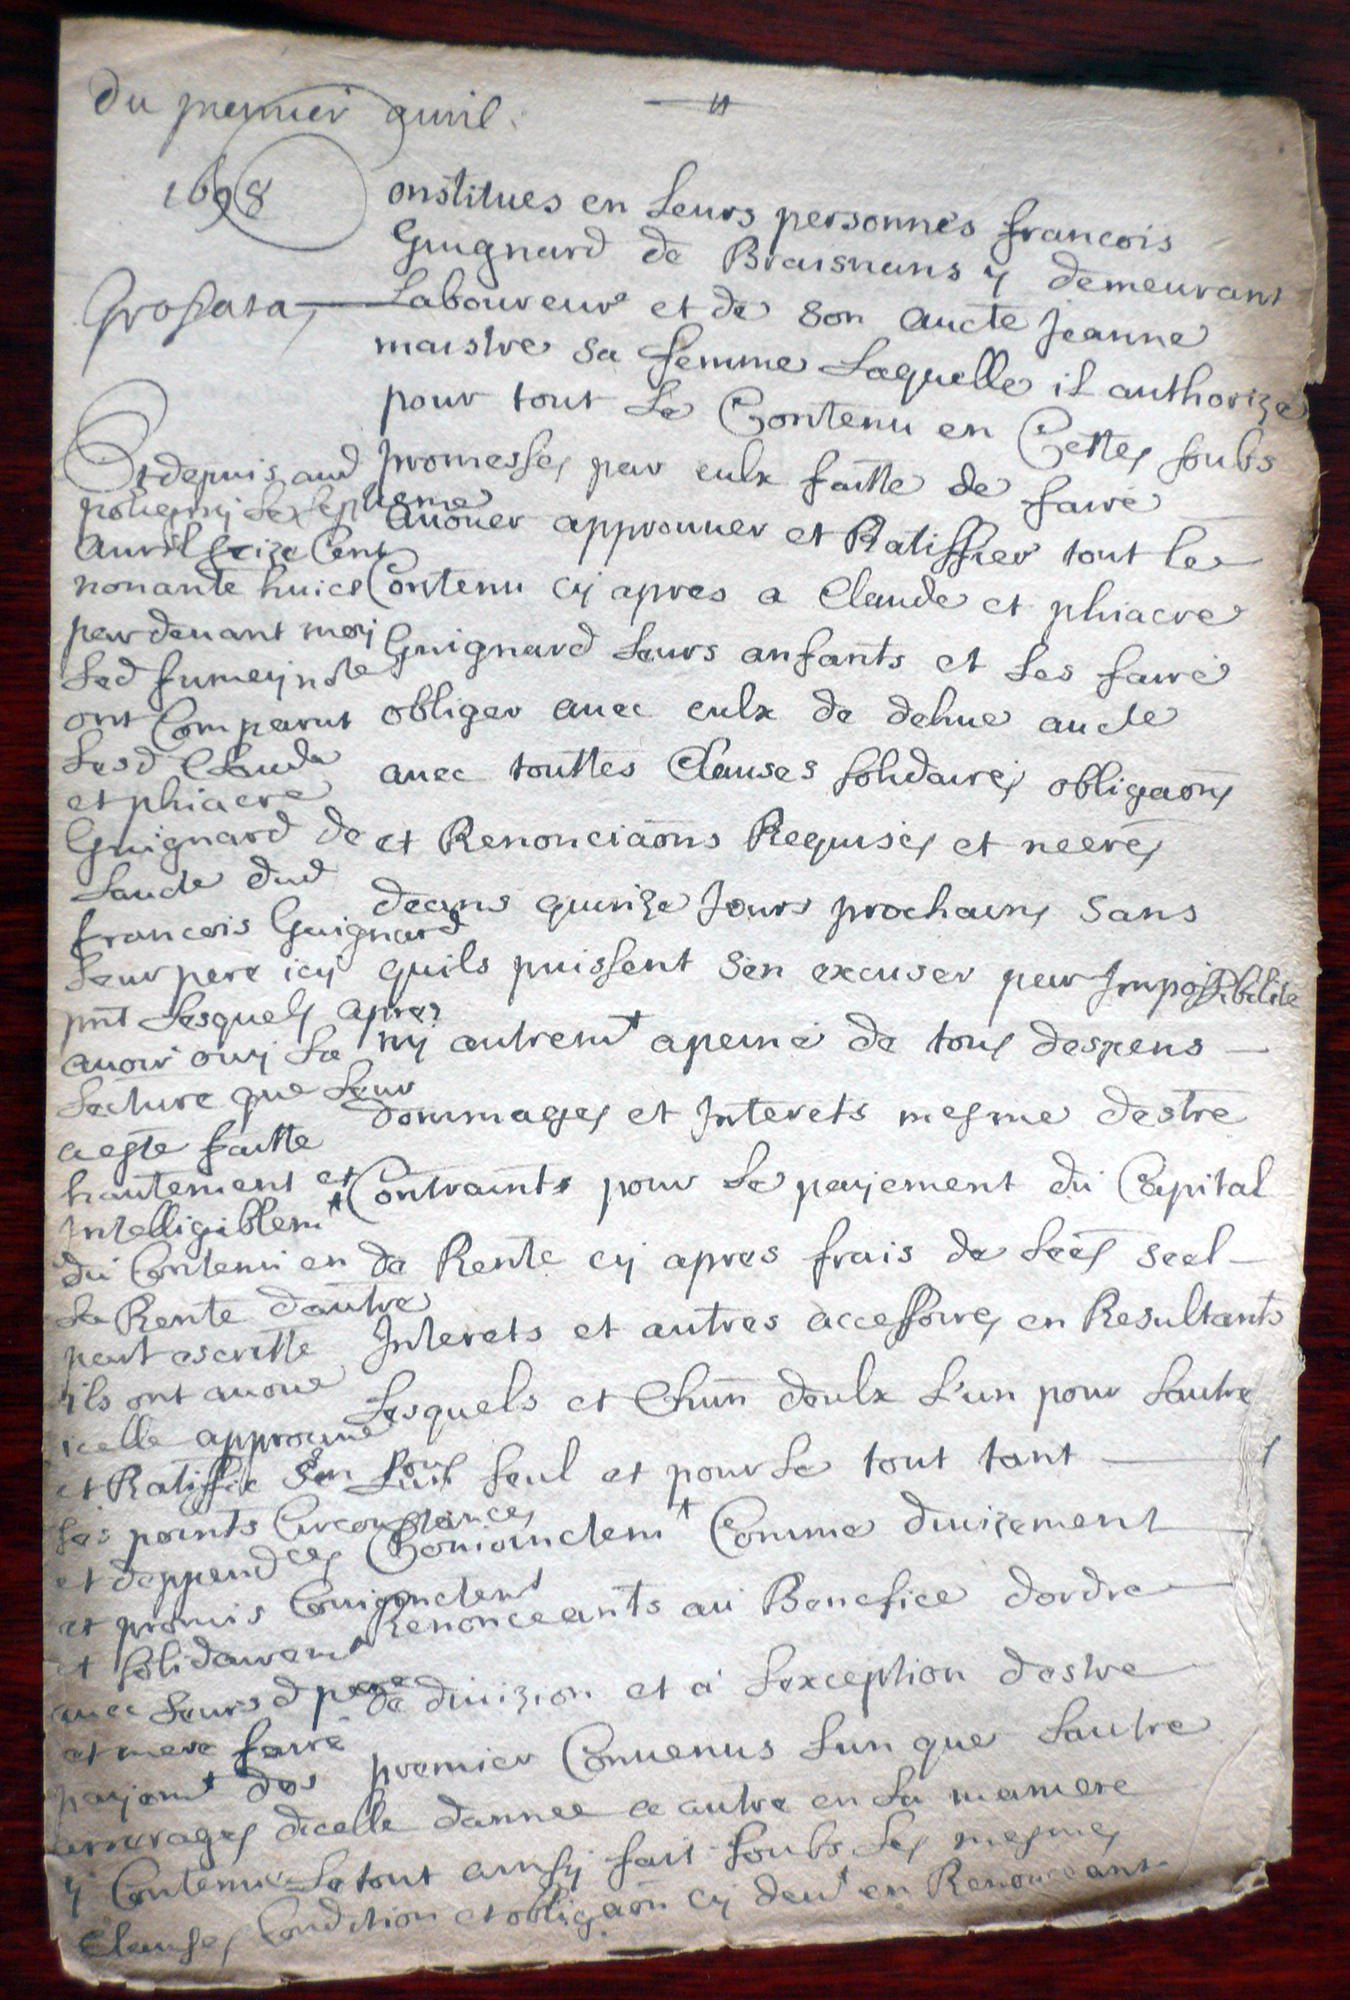 du premier auril
1698
Grossata
onstitues en Leurs personnes francois
Guignard de Braisnans y demeurant
Laboureur et de son aucte Jeanne
maistre sa femme Laquelle il authorize
pour tout Le Contenu en Cettes soubs
promesses par eulx faitte de faire
auouer approuuer et Ratiffier tout le
Contenu cy apres a Claude et phiacre
Guignard Leurs anfants et Les faire
obliger auec eulx de dehue aucte
auec touttes Clauses solidaires obligaons
et Renonciaons Requises et neeres
deans quinze Jours prochains sans
quils puissent s'en excuser par Impossibilite
ny autremt a peine de tous despens
dommages et Interets mesme destre
Contraints pour Le payement du Capital
de Rente cy apres frais de Lees seel
Interets et autres accessoires en Resultants
Lesquels et Chun deulx L'un pour Lautre
seul et pour Le tout tant
Conioinctemt Comme diuizement
Renonceants au Benefice dordre
de diuizion et a Lexception destre
premier Conuenus Lun que Lautre
Et depuis aud
poligny Le septieme
auril seize Cent
nonante huict
par deuant moy
Led fumey nore
ont Comparut
Lesd Claude
et phiacre
Guignard de
Laucte dud
francois Guignard
Leur pere icy
pnt Lesquels apres
auoir ouy La
Lecture que Leur
a este faitte
hautement et
Intelligiblemt
du Contenu en
La Rente dautre
part escritte
ils ont auoue
icelle approuue
et Ratiffie en tous
ses points Circonstances
et deppendces
et promis Conioinctemt
et solidairemt
auec Leursd pere
et mere faire
payemt des
arrerages dicelle dannee a autre en La maniere
y Contenue Le tout ainsy fait soubs Les mesmes
Clauses Condition et obligaon cy deut en Renonceant